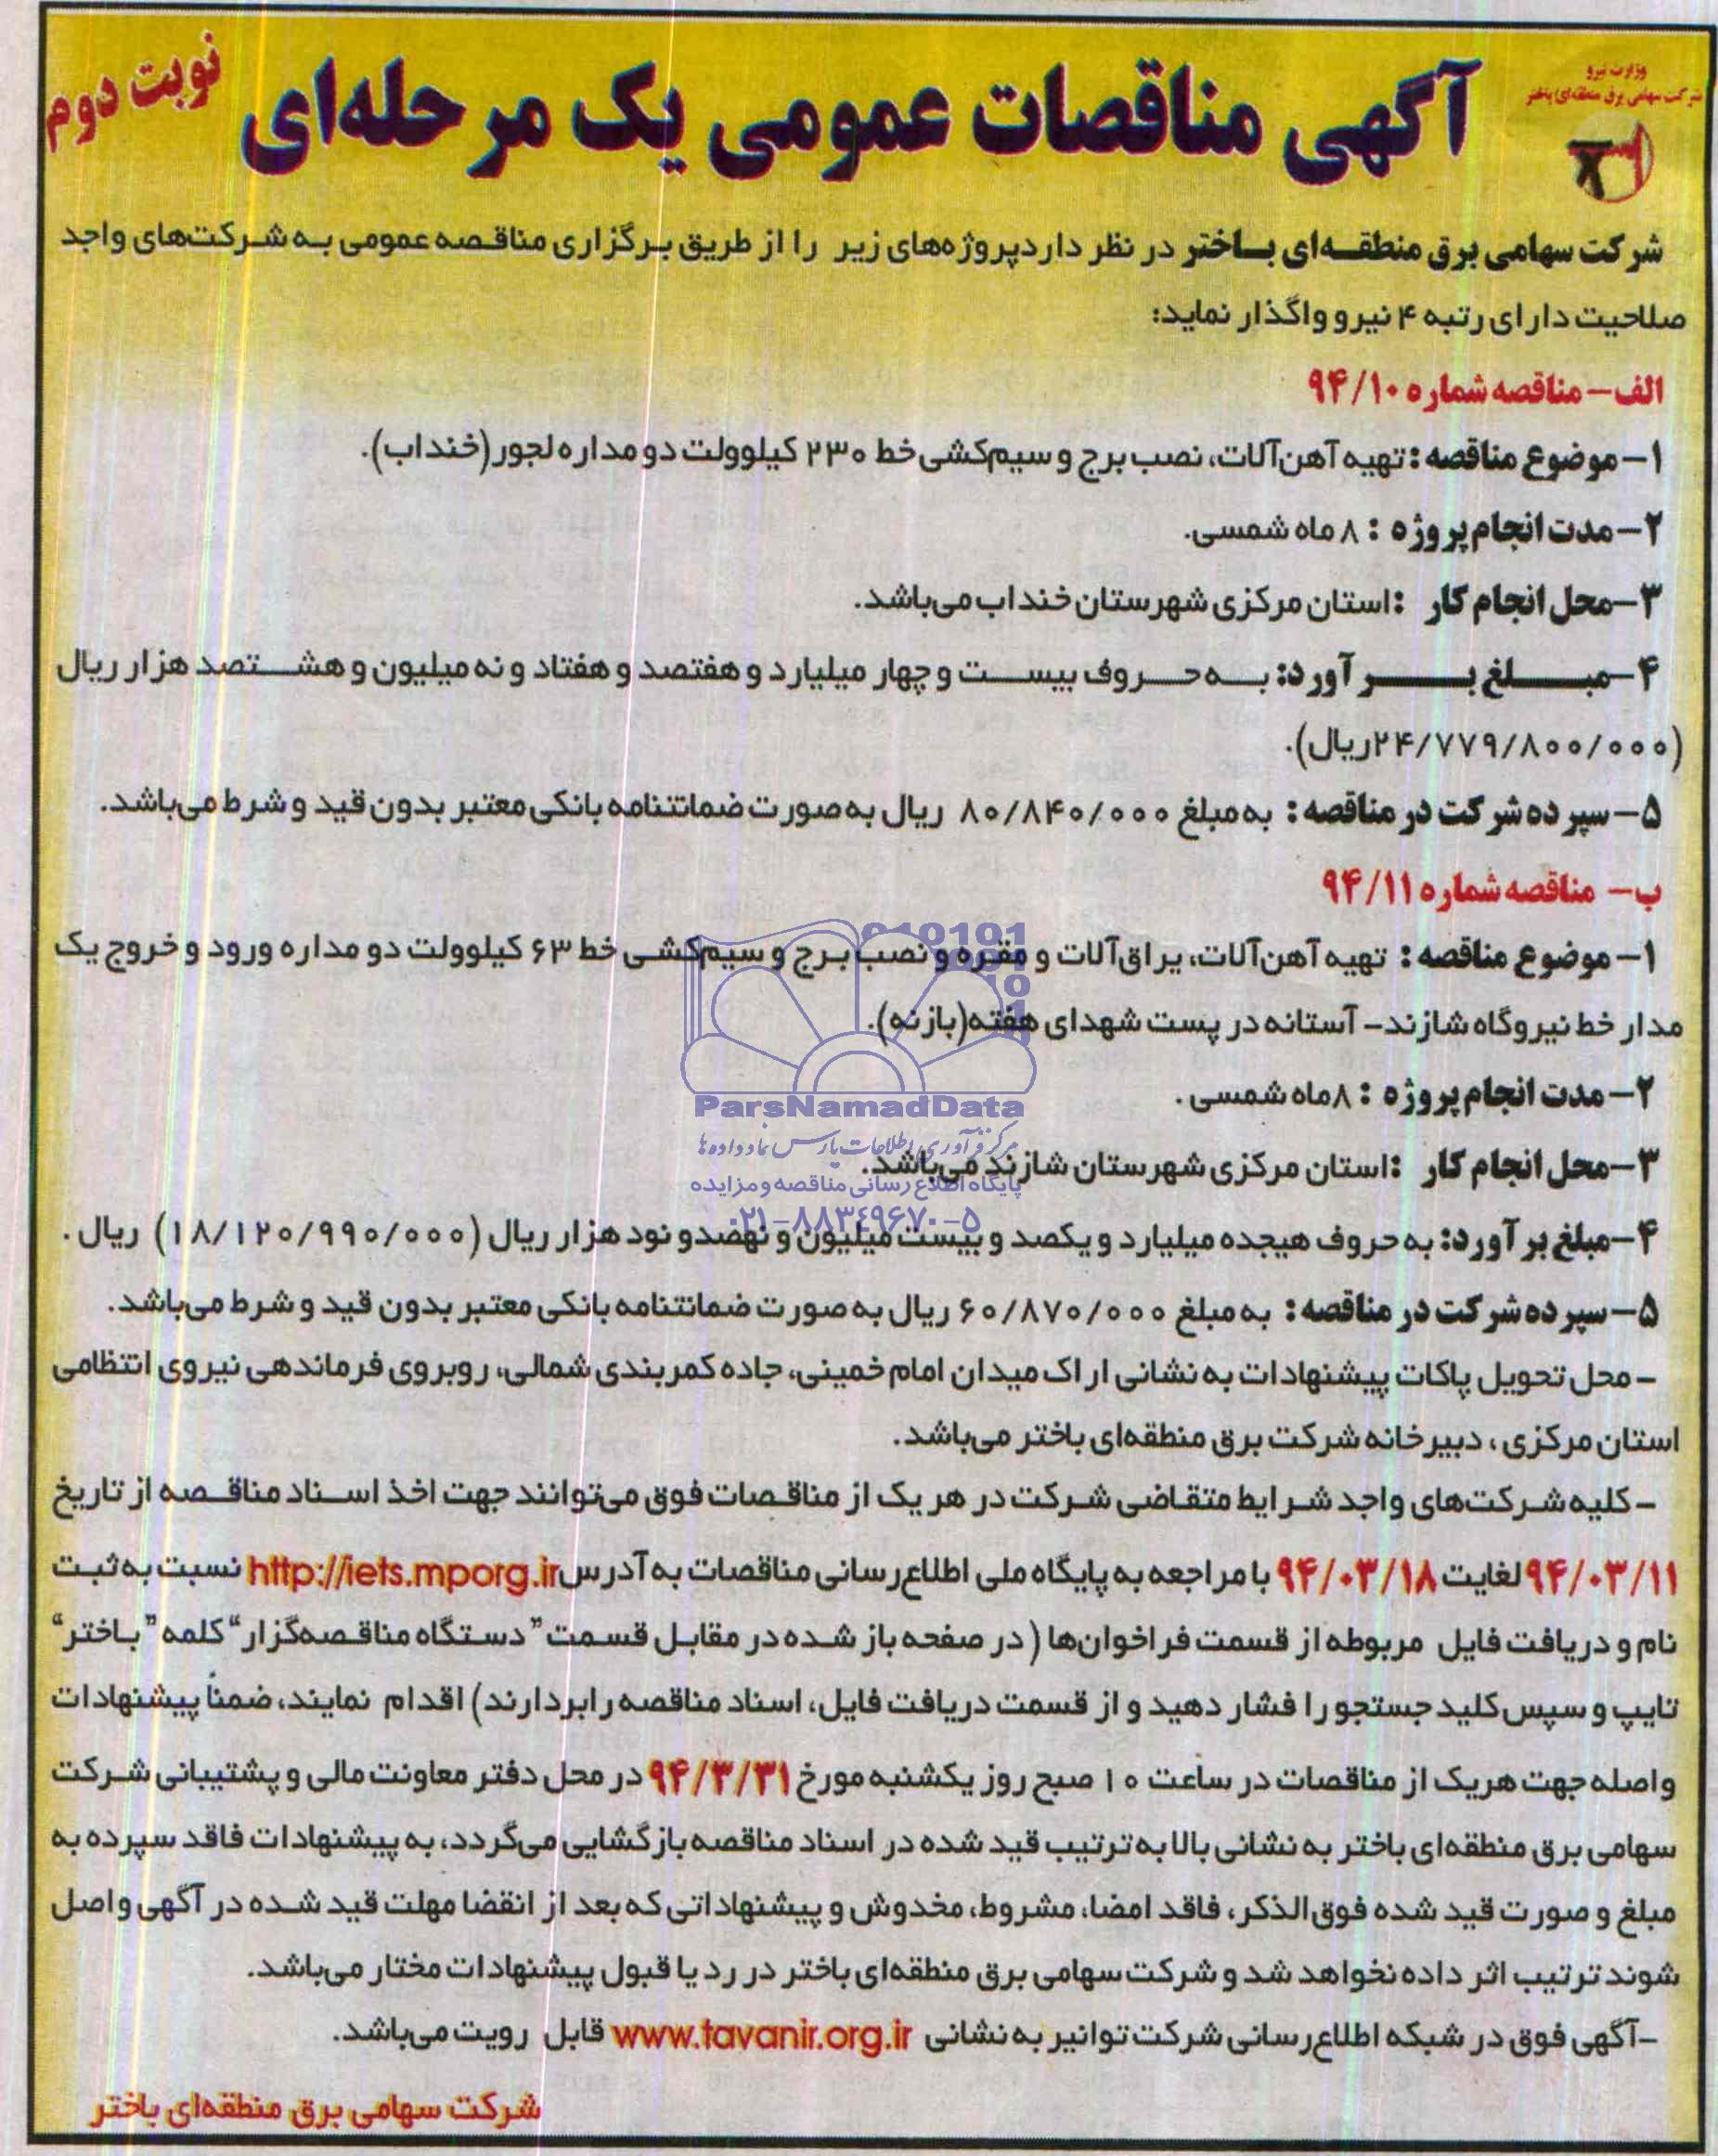 وزارت نیرو
شرکت سهامی برق منطقه‌ای باختر
نوبت دوم
آگهی مناقصات عمومی یک مرحله‌ای
شرکت سهامی برق منطقه‌ای باختر در نظر دارد پروژه‌های زیر را از طریق برگزاری مناقصه عمومی به شرکت‌های واجد
صلاحیت دارای رتبه ۴ نیرو واگذار نماید:
الف – مناقصه شماره ۹۴/۱۰
۱– موضوع مناقصه: تهیه آهن‌آلات، نصب برج و سیم‌کشی خط ۲۳۰ کیلوولت دو مداره لجور (خنداب).
۲– مدت انجام پروژه : ۸ ماه شمسی.
۳–محل انجام کار : استان مرکزی شهرستان خنداب می‌باشد.
۴–مبلغ برآورد: به حروف بیست و چهار میلیارد و هفتصد و هفتاد و نه میلیون و هشتصد هزار ریال
(۲۴/۷۷۹/۸۰۰/۰۰۰ریال).
۵– سپرده شرکت در مناقصه: به مبلغ ۸۰/۸۴۰/۰۰۰ ریال به صورت ضمانتنامه بانکی معتبر بدون قید و شرط می‌باشد.
ب– مناقصه شماره ۹۴/۱۱
۱– موضوع مناقصه: تهیه آهن‌آلات، یراق‌آلات و مقره و نصب برج و سیم‌کشی خط ۶۳ کیلوولت دو مداره ورود و خروج یک
مدار خط نیروگاه شازند– آستانه در پست شهدای هفته(بازنه).
۲– مدت انجام پروژه : ۸ماه شمسی .
۳–محل انجام کار : استان مرکزی شهرستان شازند می‌باشد.
۴–مبلغ برآورد: به حروف هیجده میلیارد و یکصد و بیست میلیون و نهصدو نود هزار ریال (۱۸/۱۲۰/۹۹۰/۰۰۰) ریال .
۵– سپرده شرکت در مناقصه: به مبلغ ۶۰/۸۷۰/۰۰۰ ریال به صورت ضمانتنامه بانکی معتبر بدون قید و شرط می‌باشد.
– محل تحویل پاکات پیشنهادات به نشانی اراک میدان امام خمینی، جاده کمربندی شمالی، روبروی فرماندهی نیروی انتظامی
استان مرکزی، دبیرخانه شرکت برق منطقه‌ای باختر می‌باشد.
– کلیه شرکت‌های واجد شرایط متقاضی شرکت در هر یک از مناقصات فوق می‌توانند جهت اخذ اسناد مناقصه از تاریخ
۹۴/۰۳/۱۱ لغایت ۹۴/۰۳/۱۸ با مراجعه به پایگاه ملی اطلاع‌رسانی مناقصات به آدرس http://iets.mporg.ir نسبت به ثبت
نام و دریافت فایل مربوطه از قسمت فراخوان‌ها (در صفحه باز شده در مقابل قسمت "دستگاه مناقصه‌گزار" کلمه "باختر"
تایپ و سپس کلید جستجو را فشار دهید و از قسمت دریافت فایل، اسناد مناقصه را بردارند) اقدام نمایند، ضمناً پیشنهادات
واصله جهت هریک از مناقصات در ساعت ۱۰ صبح روز یکشنبه مورخ ۹۴/۳/۳۱ در محل دفتر معاونت مالی و پشتیبانی شرکت
سهامی برق منطقه‌ای باختر به نشانی بالا به ترتیب قید شده در اسناد مناقصه بازگشایی می‌گردد، به پیشنهادات فاقد سپرده به
مبلغ و صورت قید شده فوق‌الذکر، فاقد امضا، مشروط، مخدوش و پیشنهاداتی که بعد از انقضا مهلت قید شده در آگهی واصل
شوند ترتیب اثر داده نخواهد شد و شرکت سهامی برق منطقه‌ای باختر در رد یا قبول پیشنهادات مختار می‌باشد.
–آگهی فوق در شبکه اطلاع‌رسانی شرکت توانیر به نشانی www.tavanir.org.ir قابل رویت می‌باشد.
شرکت سهامی برق منطقه‌ای باختر
ParsNamadData
مرکز فرآوری اطلاعات پارس نماد داده‌ها
پایگاه اطلاع رسانی مناقصه و مزایده
۰۲۱-۸۸۳۴۹۶۷۰-۵